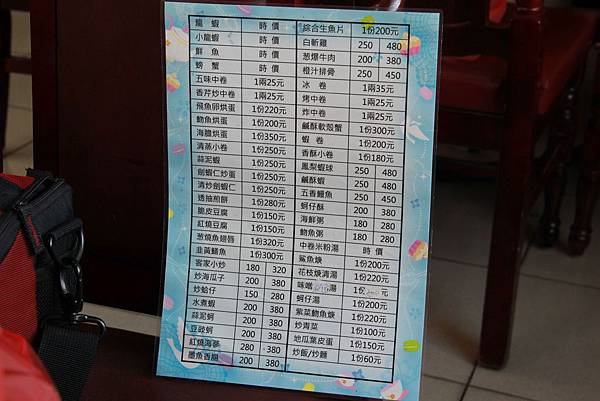 龍 蝦 時 價
小龍蝦 時 價
鮮 魚 時 價
螃 蟹 時 價
五味中卷 1兩25元
香芹炒中卷 1兩25元
飛魚卵烘蛋 1份220元
魩魚烘蛋 1份200元
海膽烘蛋 1份350元
清蒸小卷 1份250元
蒜泥蝦 1份250元
劍蝦仁炒蛋 1份250元
清炒劍蝦仁 1份250元
透抽煎餅 1份280元
脆皮豆腐 1份150元
紅燒豆腐 1份150元
蔥燒魚翅唇 1份320元
韭黃鱔魚 1份300元
客家小炒 180 320
炒海瓜子 200 380
炒蛤仔 150 280
水煮蝦 200 380
蒜泥蚵 200 380
豆豉蚵 200 380
紅燒海蔘 280 380
墨魚香腸 200 380
綜合生魚片 1份200元
白斬雞 250 480
蔥爆牛肉 200 380
橙汁排骨 250 450
冰 卷 1兩35元
烤中卷 1兩25元
炸中卷 1兩25元
鹹酥軟殼蟹 1份300元
蝦 卷 1份200元
香酥小卷 1份180元
鳳梨蝦球 250 480
鹹酥蝦 250 480
五香鰻魚 250 450
蚵仔酥 200 380
海鮮粥 180 280
魩魚粥 180 280
中卷米粉湯 時 價
鯊魚焿 1份200元
花枝焿清湯 1份220元
味噌 湯
蚵仔湯 1份200元
紫菜魩魚焿 1份220元
炒青菜 1份100元
地瓜葉皮蛋 1份150元
炒飯/炒麵 1份60元